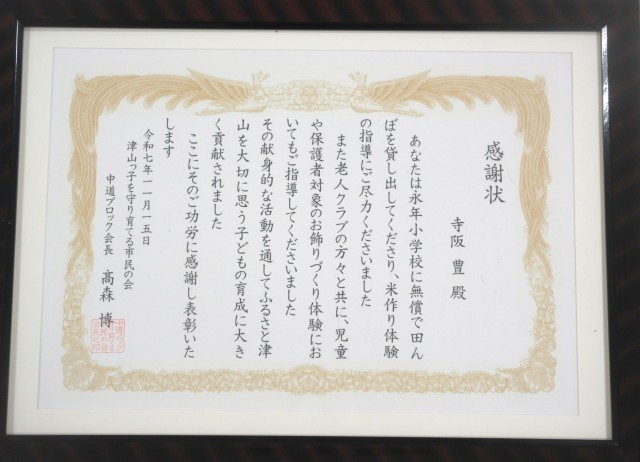 感謝状
寺阪 豊 殿
あなたは永年小学校に無償で田ん
ぼを貸し出してくださり、米作り体験
の指導にご尽力くださいました
また老人クラブの方々と共に、児童
や保護者対象のお飾りづくり体験にお
いてもご指導してくださいました
その献身的な活動を通してふるさと津
山を大切に思う子どもの育成に大き
く貢献されました
ここにそのご功労に感謝し表彰いた
します
令和七年一一月一五日
津山っ子を守り育てる市民の会
中道ブロック会長 髙森 博